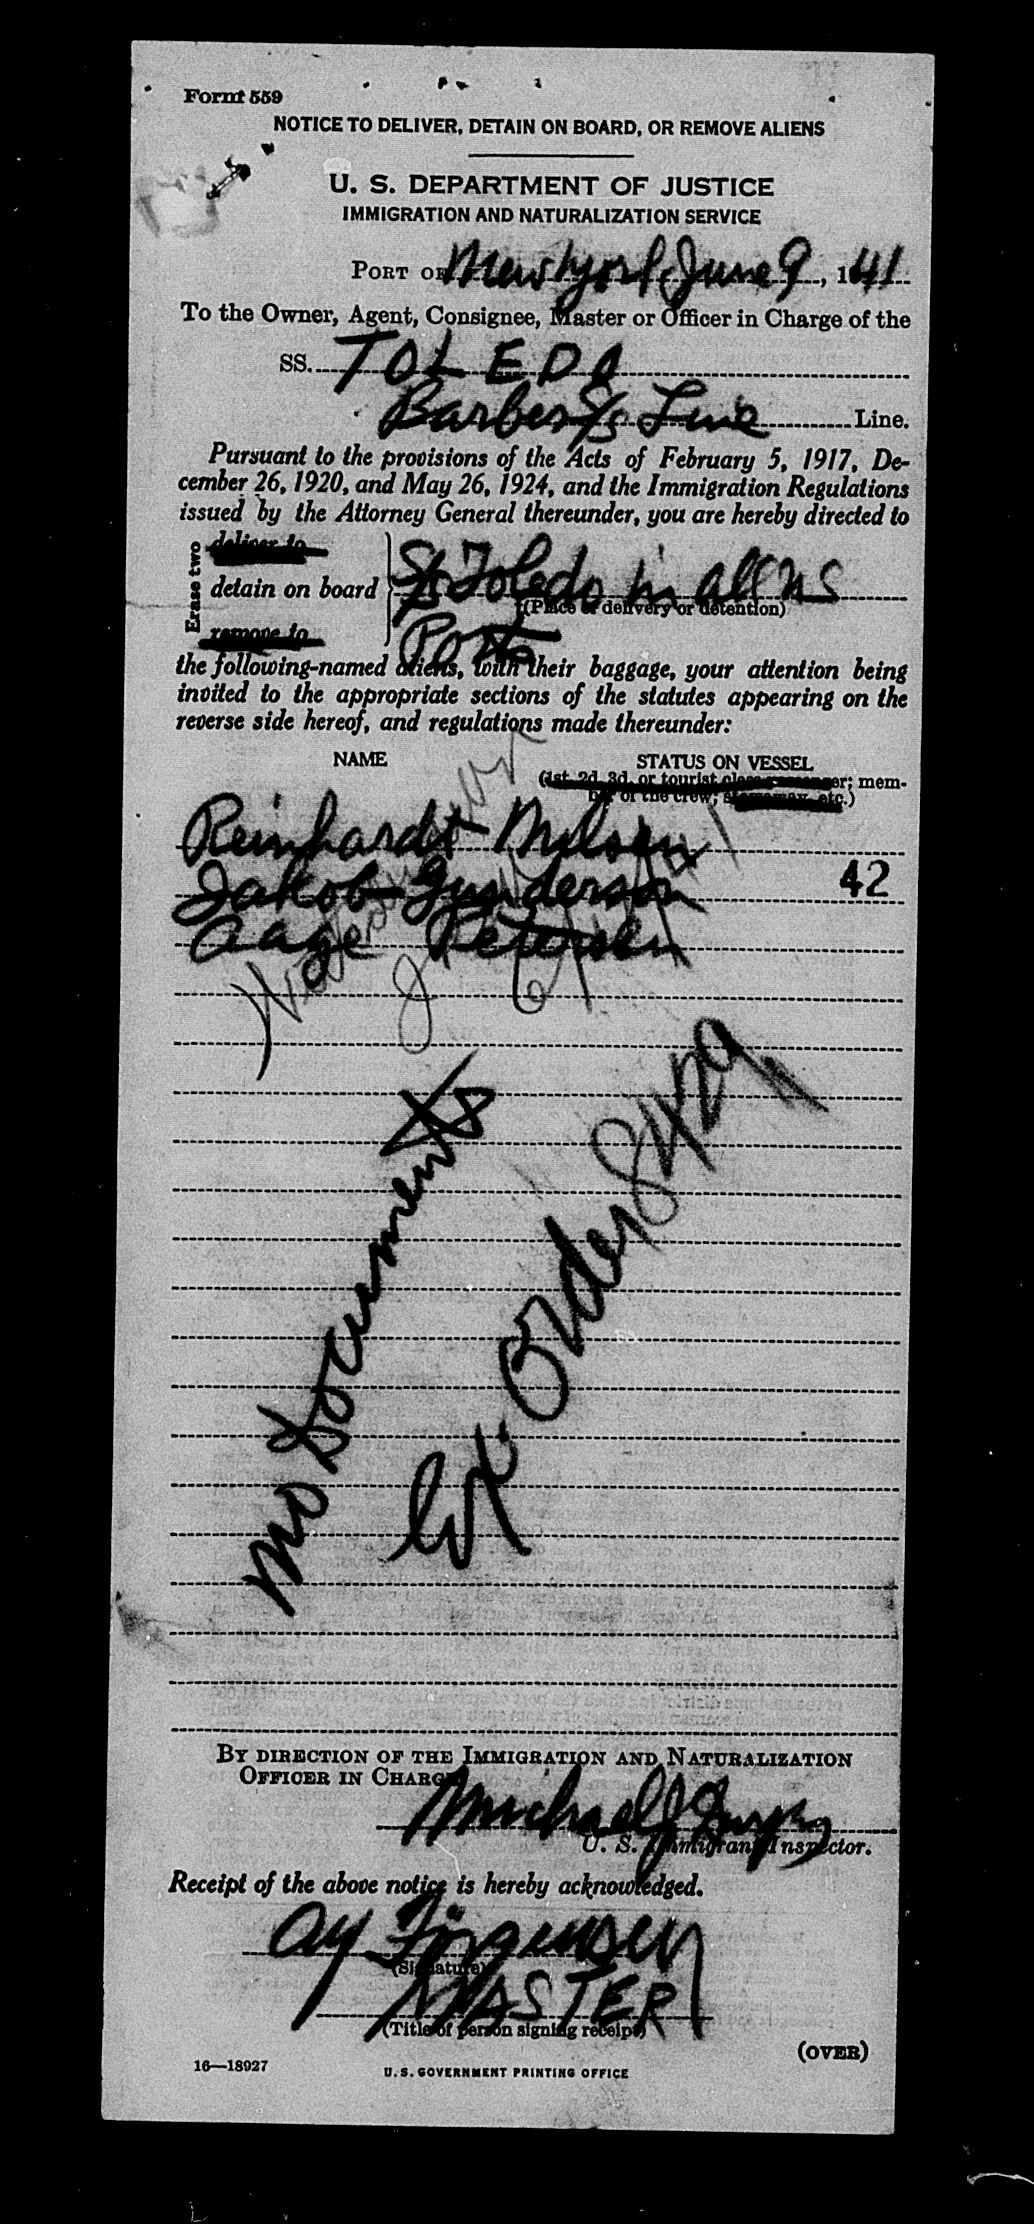 Form 559
NOTICE TO DELIVER, DETAIN ON BOARD, OR REMOVE ALIENS
U. S. DEPARTMENT OF JUSTICE
IMMIGRATION AND NATURALIZATION SERVICE
PORT OF New York, June 9, 1941
To the Owner, Agent, Consignee, Master or Officer in Charge of the
SS. TOLEDO
Barber S/S Line Line.
Pursuant to the provisions of the Acts of February 5, 1917, De-
cember 26, 1920, and May 26, 1924, and the Immigration Regulations
issued by the Attorney General thereunder, you are hereby directed to
Erase two
deliver to
detain on board S/S Toledo in all U S
remove to
(Place of delivery or detention)
Ports
the following-named aliens, with their baggage, your attention being
invited to the appropriate sections of the statutes appearing on the
reverse side hereof, and regulations made thereunder:
NAME STATUS ON VESSEL
(1st, 2d, 3d, or tourist class passenger; mem-
ber of the crew, stowaway, etc.)
Reinhardt Nilsen
Jakob Gunderson 42
Aage Petersen
no documents
Ex. Order 8429
BY DIRECTION OF THE IMMIGRATION AND NATURALIZATION
OFFICER IN CHARGE
Michael J
U. S. Immigrant Inspector.
Receipt of the above notice is hereby acknowledged.
Jörgensen
(Signature)
MASTER
(Title of person signing receipt)
(OVER)
16—18927
U.S. GOVERNMENT PRINTING OFFICE